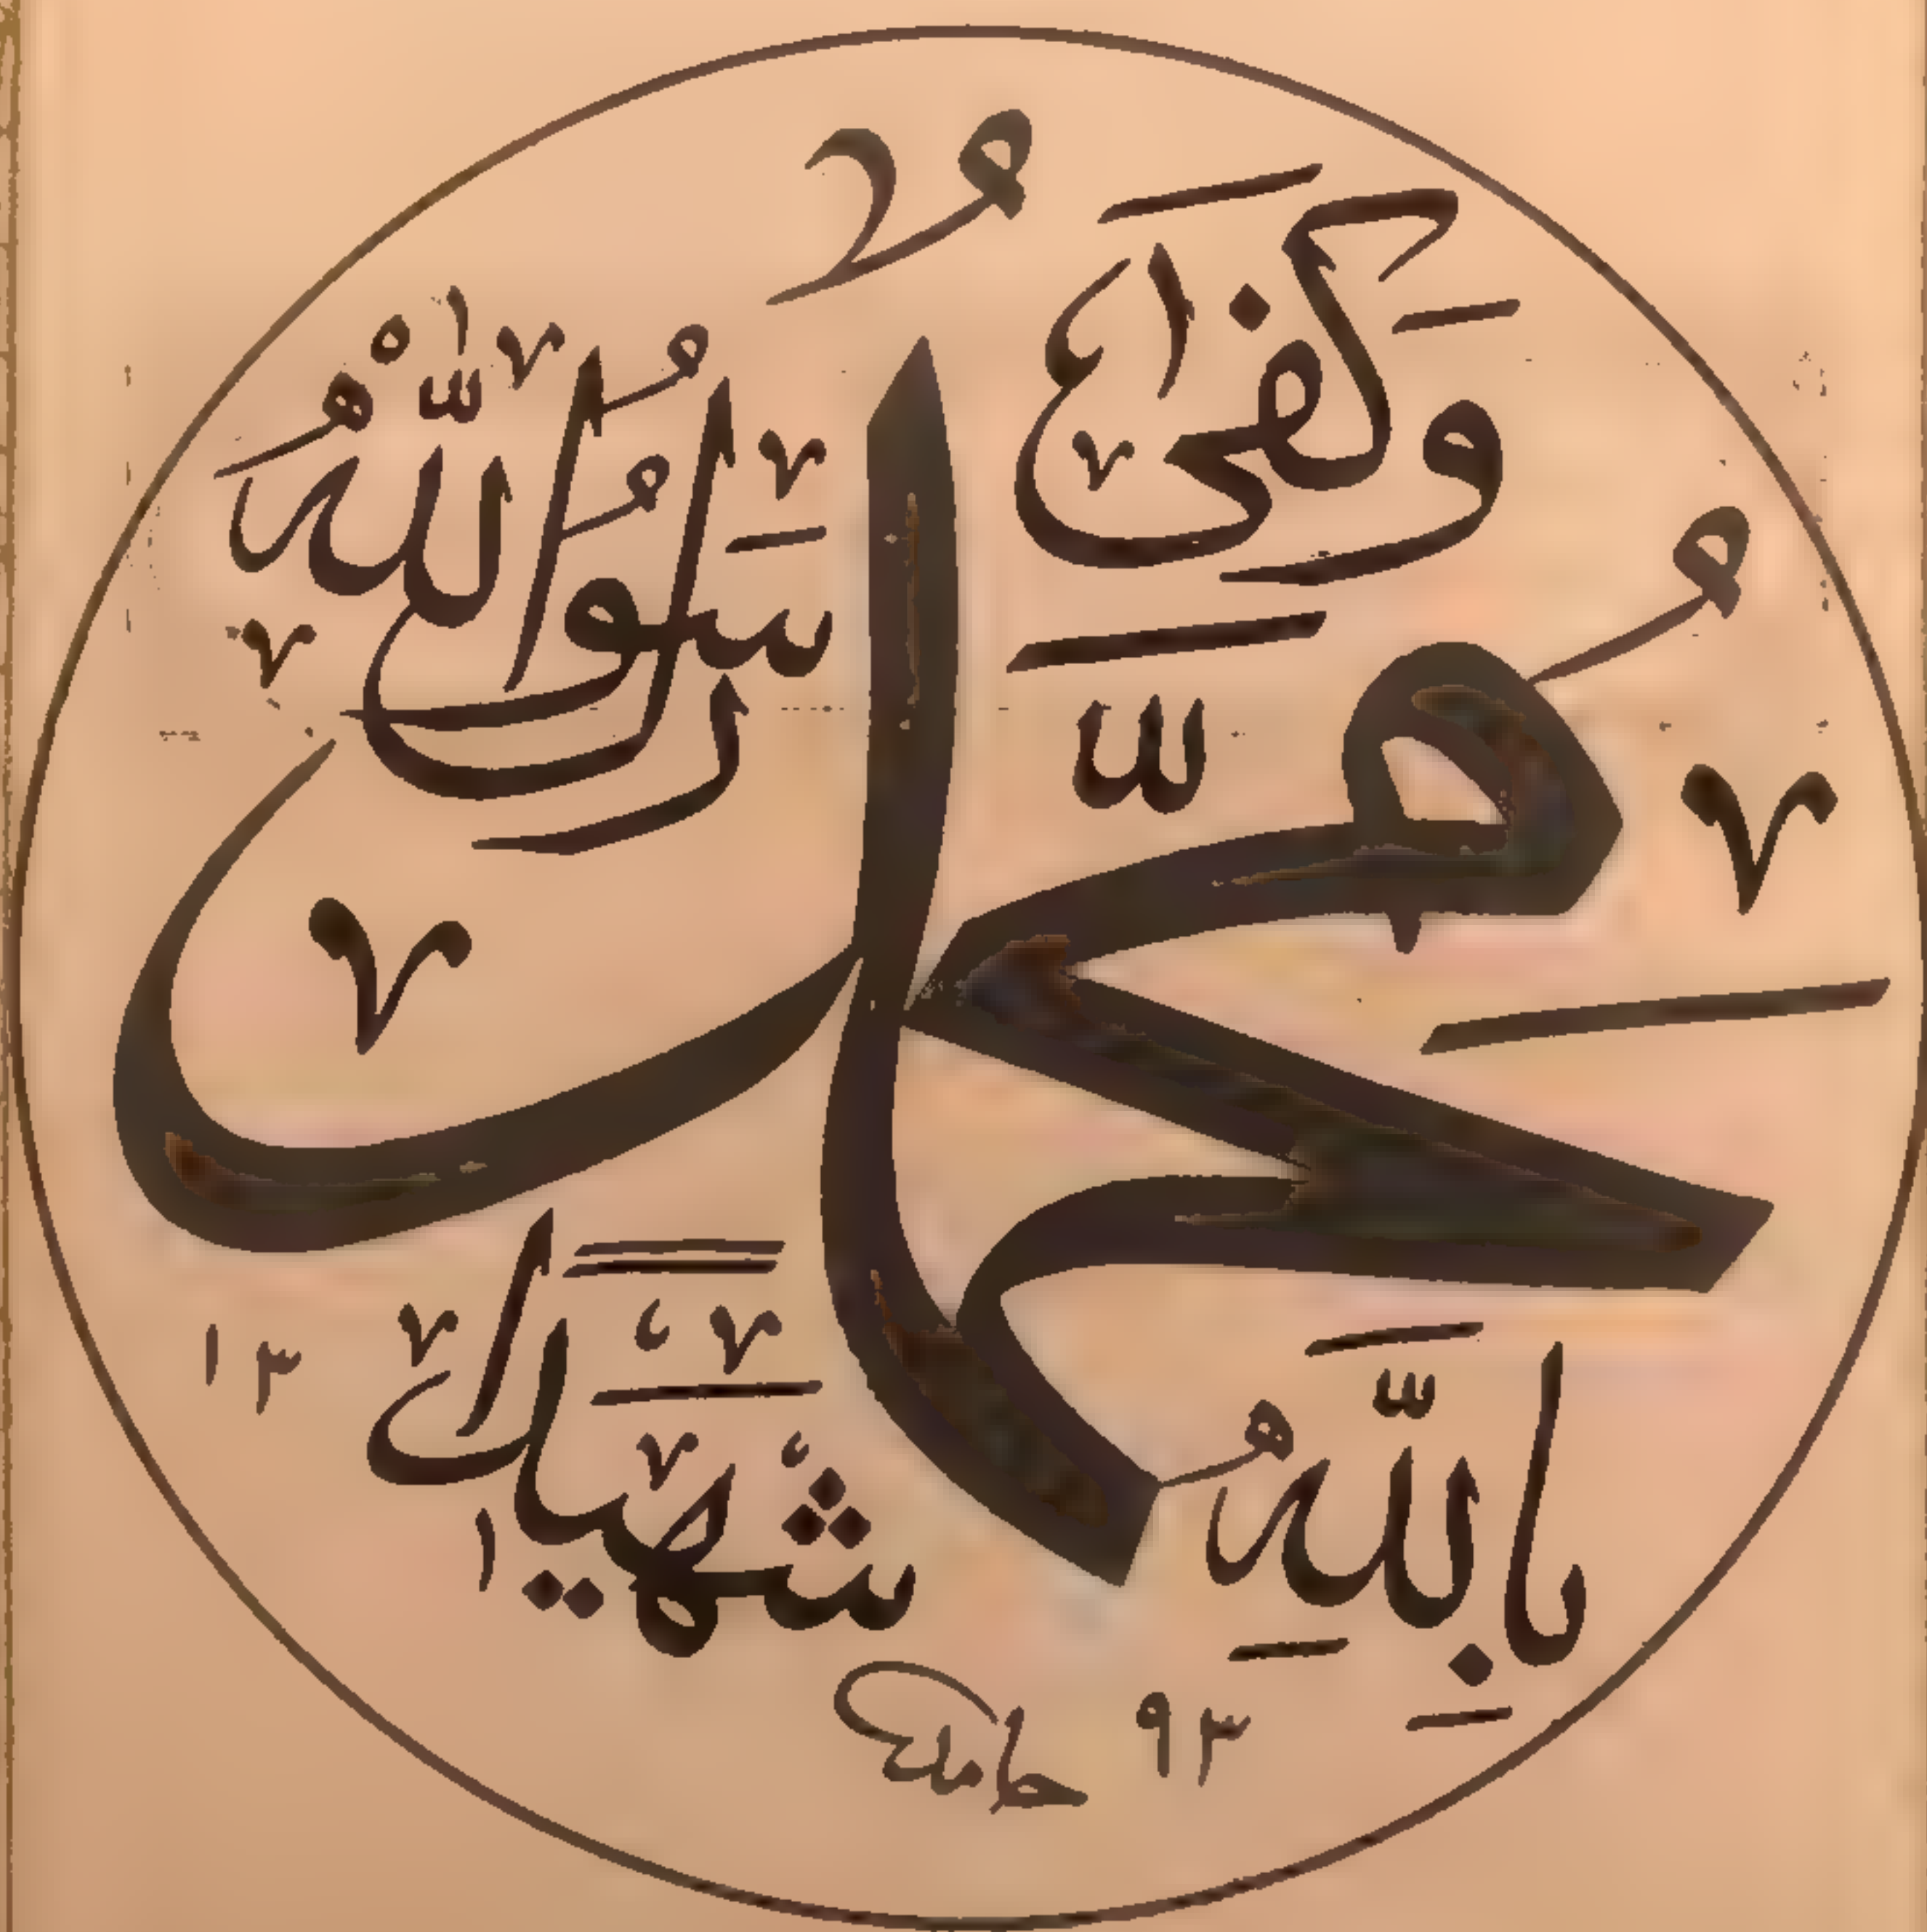 وَكَفَىٰ
بِاللَّهِ
شَهِيدًا
مُحَمَّدٌ
رَسُولُ اللَّهُ
حامد
١٣ ٩٣